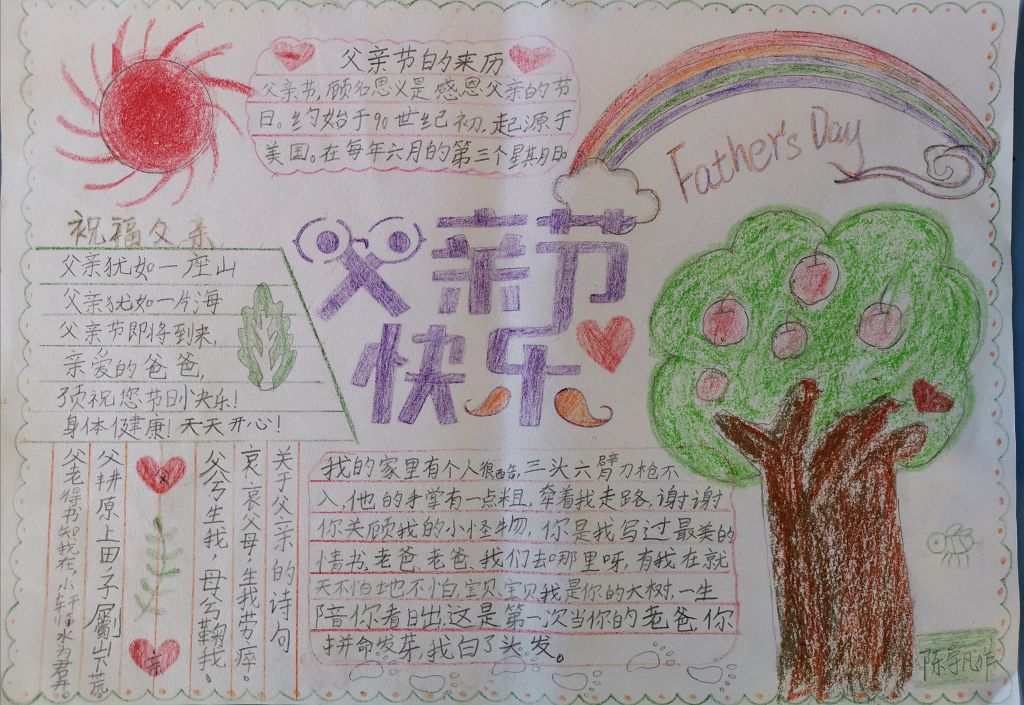 父亲节的来历
父亲节,顾名思义是感恩父亲的节
日。约始于90世纪初,起源于
美国。在每年六月的第三个星期日
Father's Day
祝福父亲
父亲犹如一座山
父亲犹如一片海
父亲节即将到来,
亲爱的爸爸,
预祝您节日快乐!
身体健康!天天开心!
父亲节
快乐
关于父亲的诗句
哀哀父母,生我劳瘁。
父兮生我,母兮鞠我。
父耕原上田,子劚山下荒。
父老得书知我在,小轩临水为君开。
我的家里有个人很酷,三头六臂刀枪不
入,他的手掌有一点粗,牵着我走路,谢谢
你关顾我的小怪物,你是我写过最美的
情书,老爸,老爸,我们去哪里呀,有我在就
天不怕地不怕,宝贝,宝贝我是你的大树,一生
陪你看日出,这是第一次当你的老爸,你
拼命发芽,我白了头发。